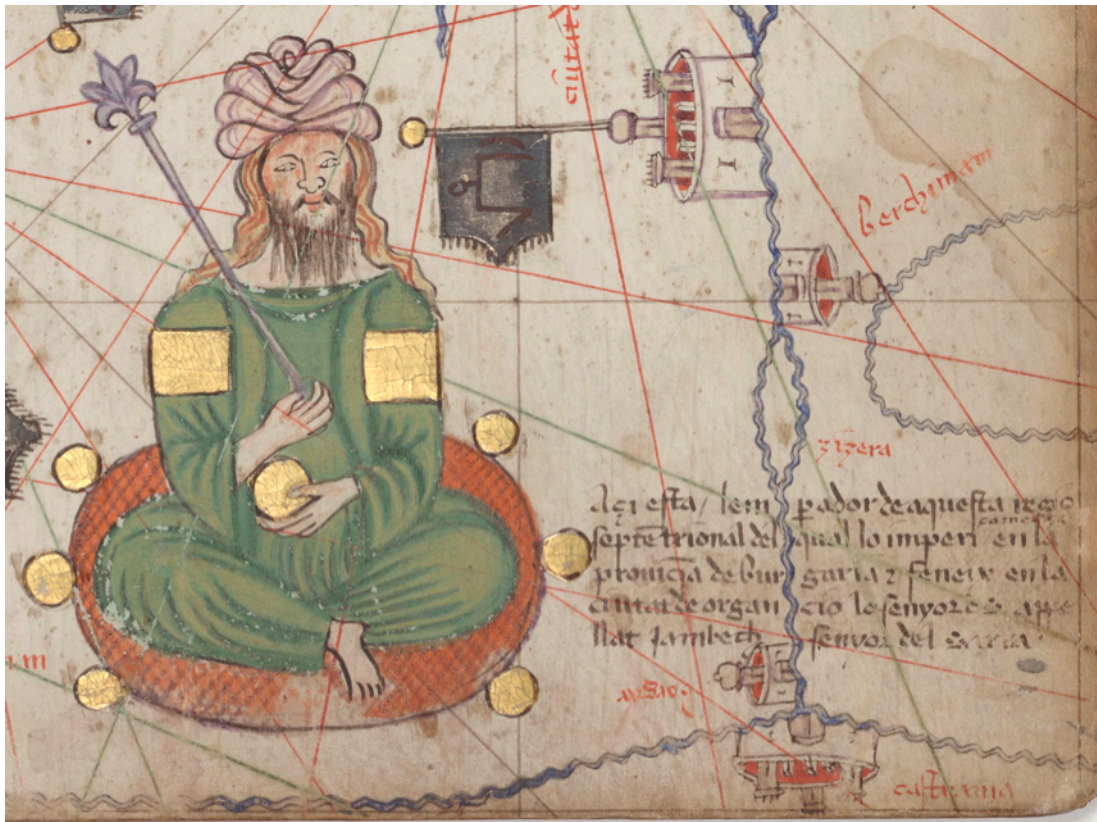 ciutat
berchimam
zizera
Açi esta / lem pador de aquesta regio
septẽtrional del qual lo imperi comensa en la
prouĩcia de burgaria z feneix en la
ciutat de organcio lo senyor es appe
llat Jambech senyor del Sarra
castrama